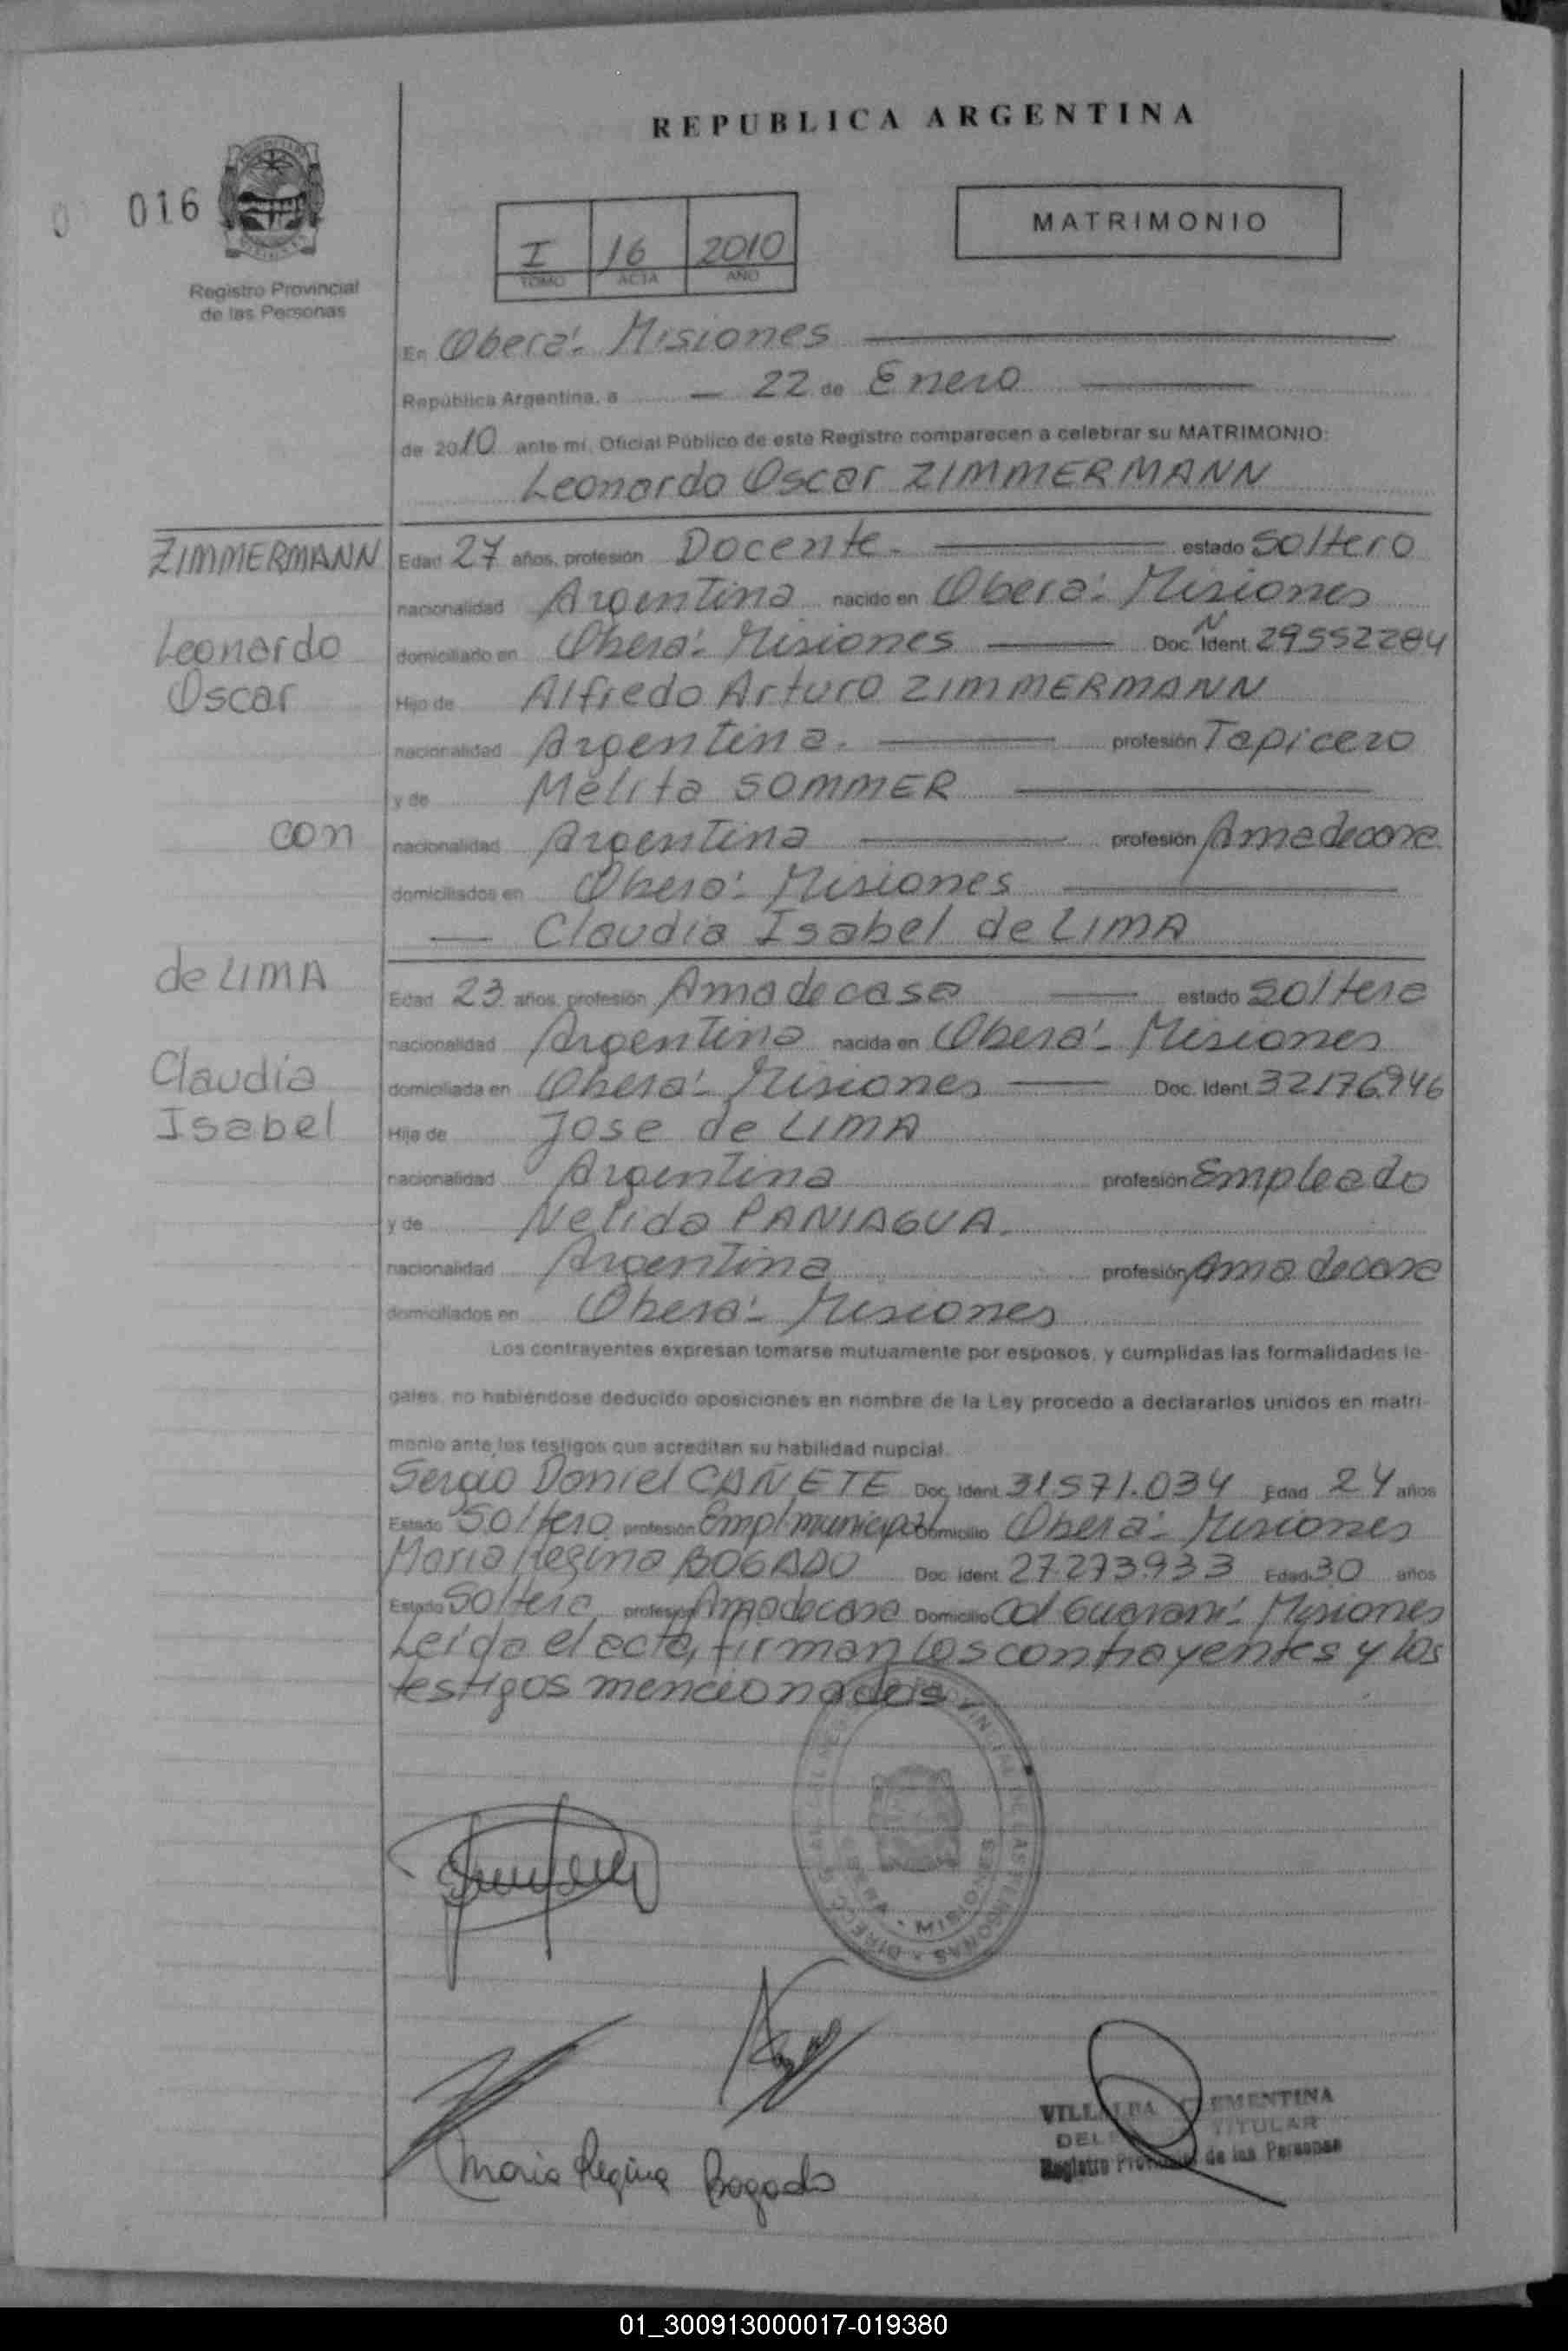 REPUBLICA ARGENTINA
016
Registro Provincial
de las Personas
I 16 2010
TOMO ACTA AÑO
MATRIMONIO
En Oberá - Misiones
República Argentina, a 22 de Enero
de 2010 ante mí, Oficial Público de este Registro comparecen a celebrar su MATRIMONIO:
Leonardo Oscar ZIMMERMANN
ZIMMERMANN
Leonardo
Oscar
con
de LIMA
Claudia
Isabel
Edad 27 años, profesión Docente. estado Soltero
nacionalidad Argentina nacido en Oberá - Misiones
domiciliado en Oberá - Misiones Doc. N Ident. 29552284
Hijo de Alfredo Arturo ZIMMERMANN
nacionalidad Argentina. profesión Tapicero
y de Mélita SOMMER
nacionalidad Argentina profesión Amadecasa
domiciliados en Oberá - Misiones
Claudia Isabel de LIMA
Edad 23 años, profesión Amadecasa estado Soltera
nacionalidad Argentina nacida en Oberá - Misiones
domiciliada en Oberá - Misiones Doc. Ident. 32176946
Hija de Jose de LIMA
nacionalidad Argentina profesión Empleado
y de Nelida PANIAGUA.
nacionalidad Argentina profesión Amadecasa
domiciliados en Oberá - Misiones
Los contrayentes expresan tomarse mutuamente por esposos, y cumplidas las formalidades le-
gales, no habiéndose deducido oposiciones en nombre de la Ley procedo a declararlos unidos en matri-
monio ante los testigos que acreditan su habilidad nupcial.
Sergio Daniel CAÑETE Doc. Ident. 31.571.034 Edad 24 años
Estado Soltero profesión Empl municipal Domicilio Oberá - Misiones
Maria Regina BOGADO Doc. Ident. 27.273.933 Edad 30 años
Estado Soltera profesión Amadecasa Domicilio Cd Guarani - Misiones
Leída el acta, firman los contrayentes y los
testigos mencionados
OBERA - MISIONES
Maria Regina Bogado
VILLALBA CLEMENTINA
DEL TITULAR
Registro Provincial de las Personas
01_300913000017-019380